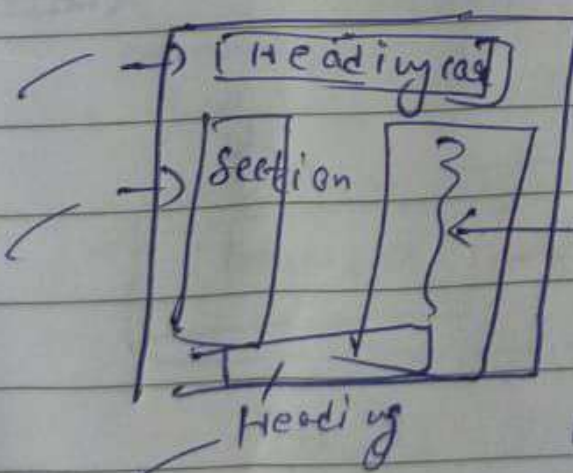 Heading
Section
Heading